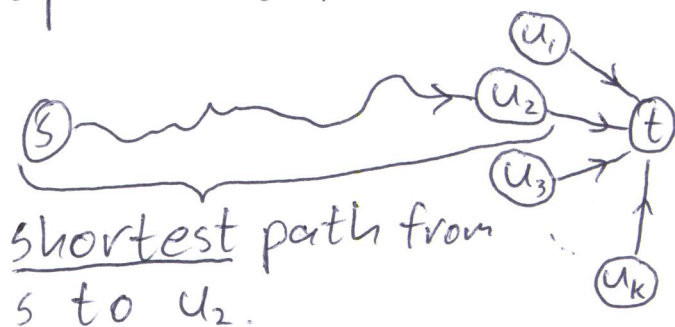 u₁
s
u₂
t
u₃
shortest path from
s to u₂.
uₖ